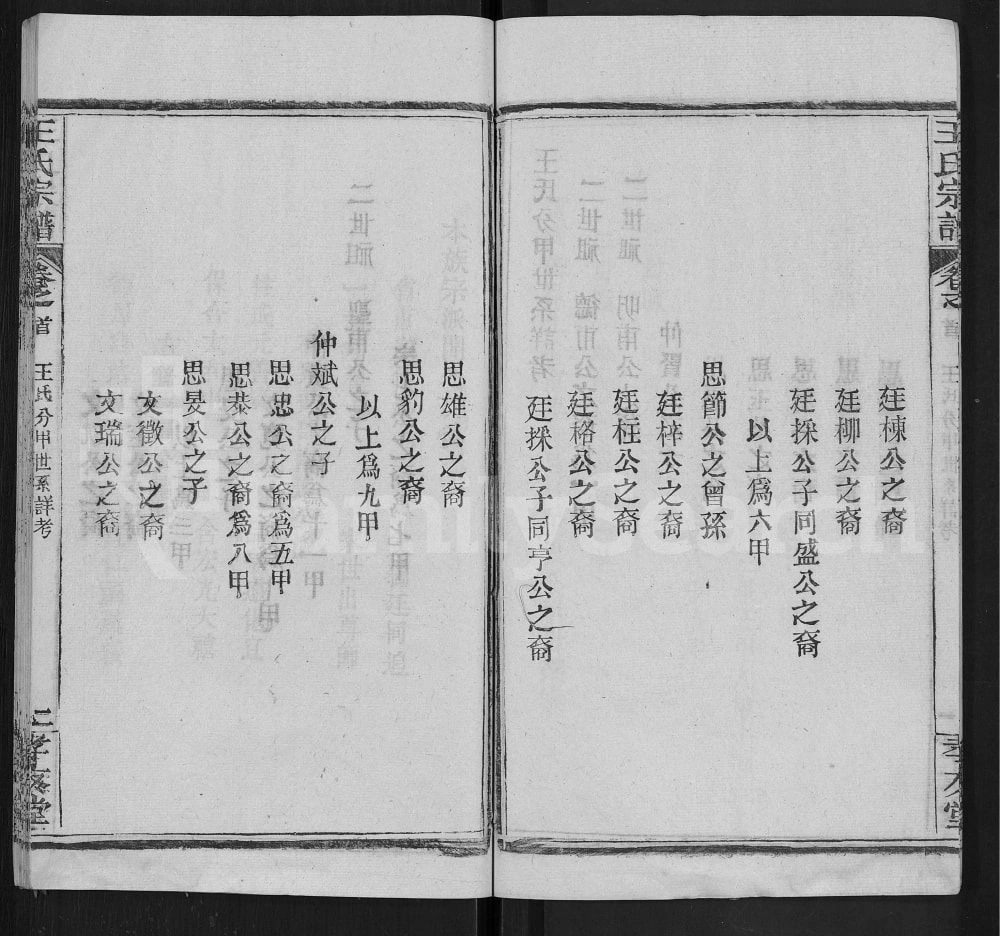 王氏宗譜 卷之首
廷棟公之裔
廷柳公之裔
廷採公子同盛公之裔
以上爲六甲
思節公之曾孫
廷梓公之裔
廷柱公之裔
廷格公之裔
廷採公子同亨公之裔
思雄公之裔
思豹公之裔
以上爲九甲
仲斌公之子
思忠公之裔爲五甲
思恭公之裔爲八甲
思旻公之子
文徵公之裔
文瑞公之裔
王氏宗譜 卷之首 王氏分甲世系詳考 二 孝友堂